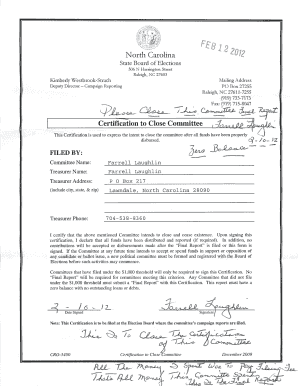 FEB 13 2012
North Carolina
State Board of Elections
506 N Harrington Street
Raleigh, NC 27603
Kimberly Westbrook-Strach
Deputy Director - Campaign Reporting
Mailing Address
PO Box 27255
Raleigh, NC 27611-7255
(919) 733-7173
Fax (919) 715-8047
Please Close This Committee Final Report
Farrell Laughlin
2-10-12
Zero Balance
Certification to Close Committee
This Certification is used to express the intent to close the committee after all funds have been properly
disbursed.
FILED BY:
Committee Name: Farrell Laughlin
Treasurer Name: Farrell Laughlin
Treasurer Address: P O Box 217
(include city, state, & zip) Lawndale, North Carolina 28090
Treasurer Phone: 704-538-8360
I certify that the above mentioned Committee intends to close and cease existence. Upon signing this
certification, I declare that all funds have been distributed and reported (if required). In addition, no
contributions will be accepted or disbursements made after the "Final Report" is filed or this form is
signed. If the Committee at any future time intends to accept or spend funds in support or opposition of
any candidate or ballot issue, a new political committee must be formed and registered with the Board of
Elections before such activities may commence.
Committees that have filed under the $1,000 threshold will only be required to sign this Certification. No
"Final Report" will be required for committees meeting this criteria. Any Committee that did not file
under the $1,000 threshold must submit a "Final Report" with this Certification. This report must have a
zero balance with no outstanding loans or debts.
2-10-12
Date Signed
Farrell Laughlin
Signature
Note: This Certification is to be filed at the Election Board where the committee's campaign reports are filed.
This Is To Close The Certification
of This Committee
CRO-3400
Certification to Close Committee
December 2009
All The Money I Spent Was To Pay Filing Fee
Thats All Money This Committee Spent
This Is The Final Report